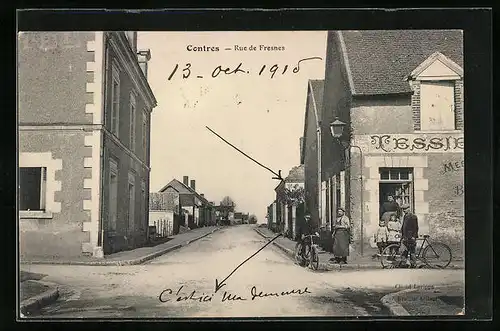 Contres — Rue de Fresnes
13 - oct. 1915
TESSIE
ME
C'est ici ma demeure